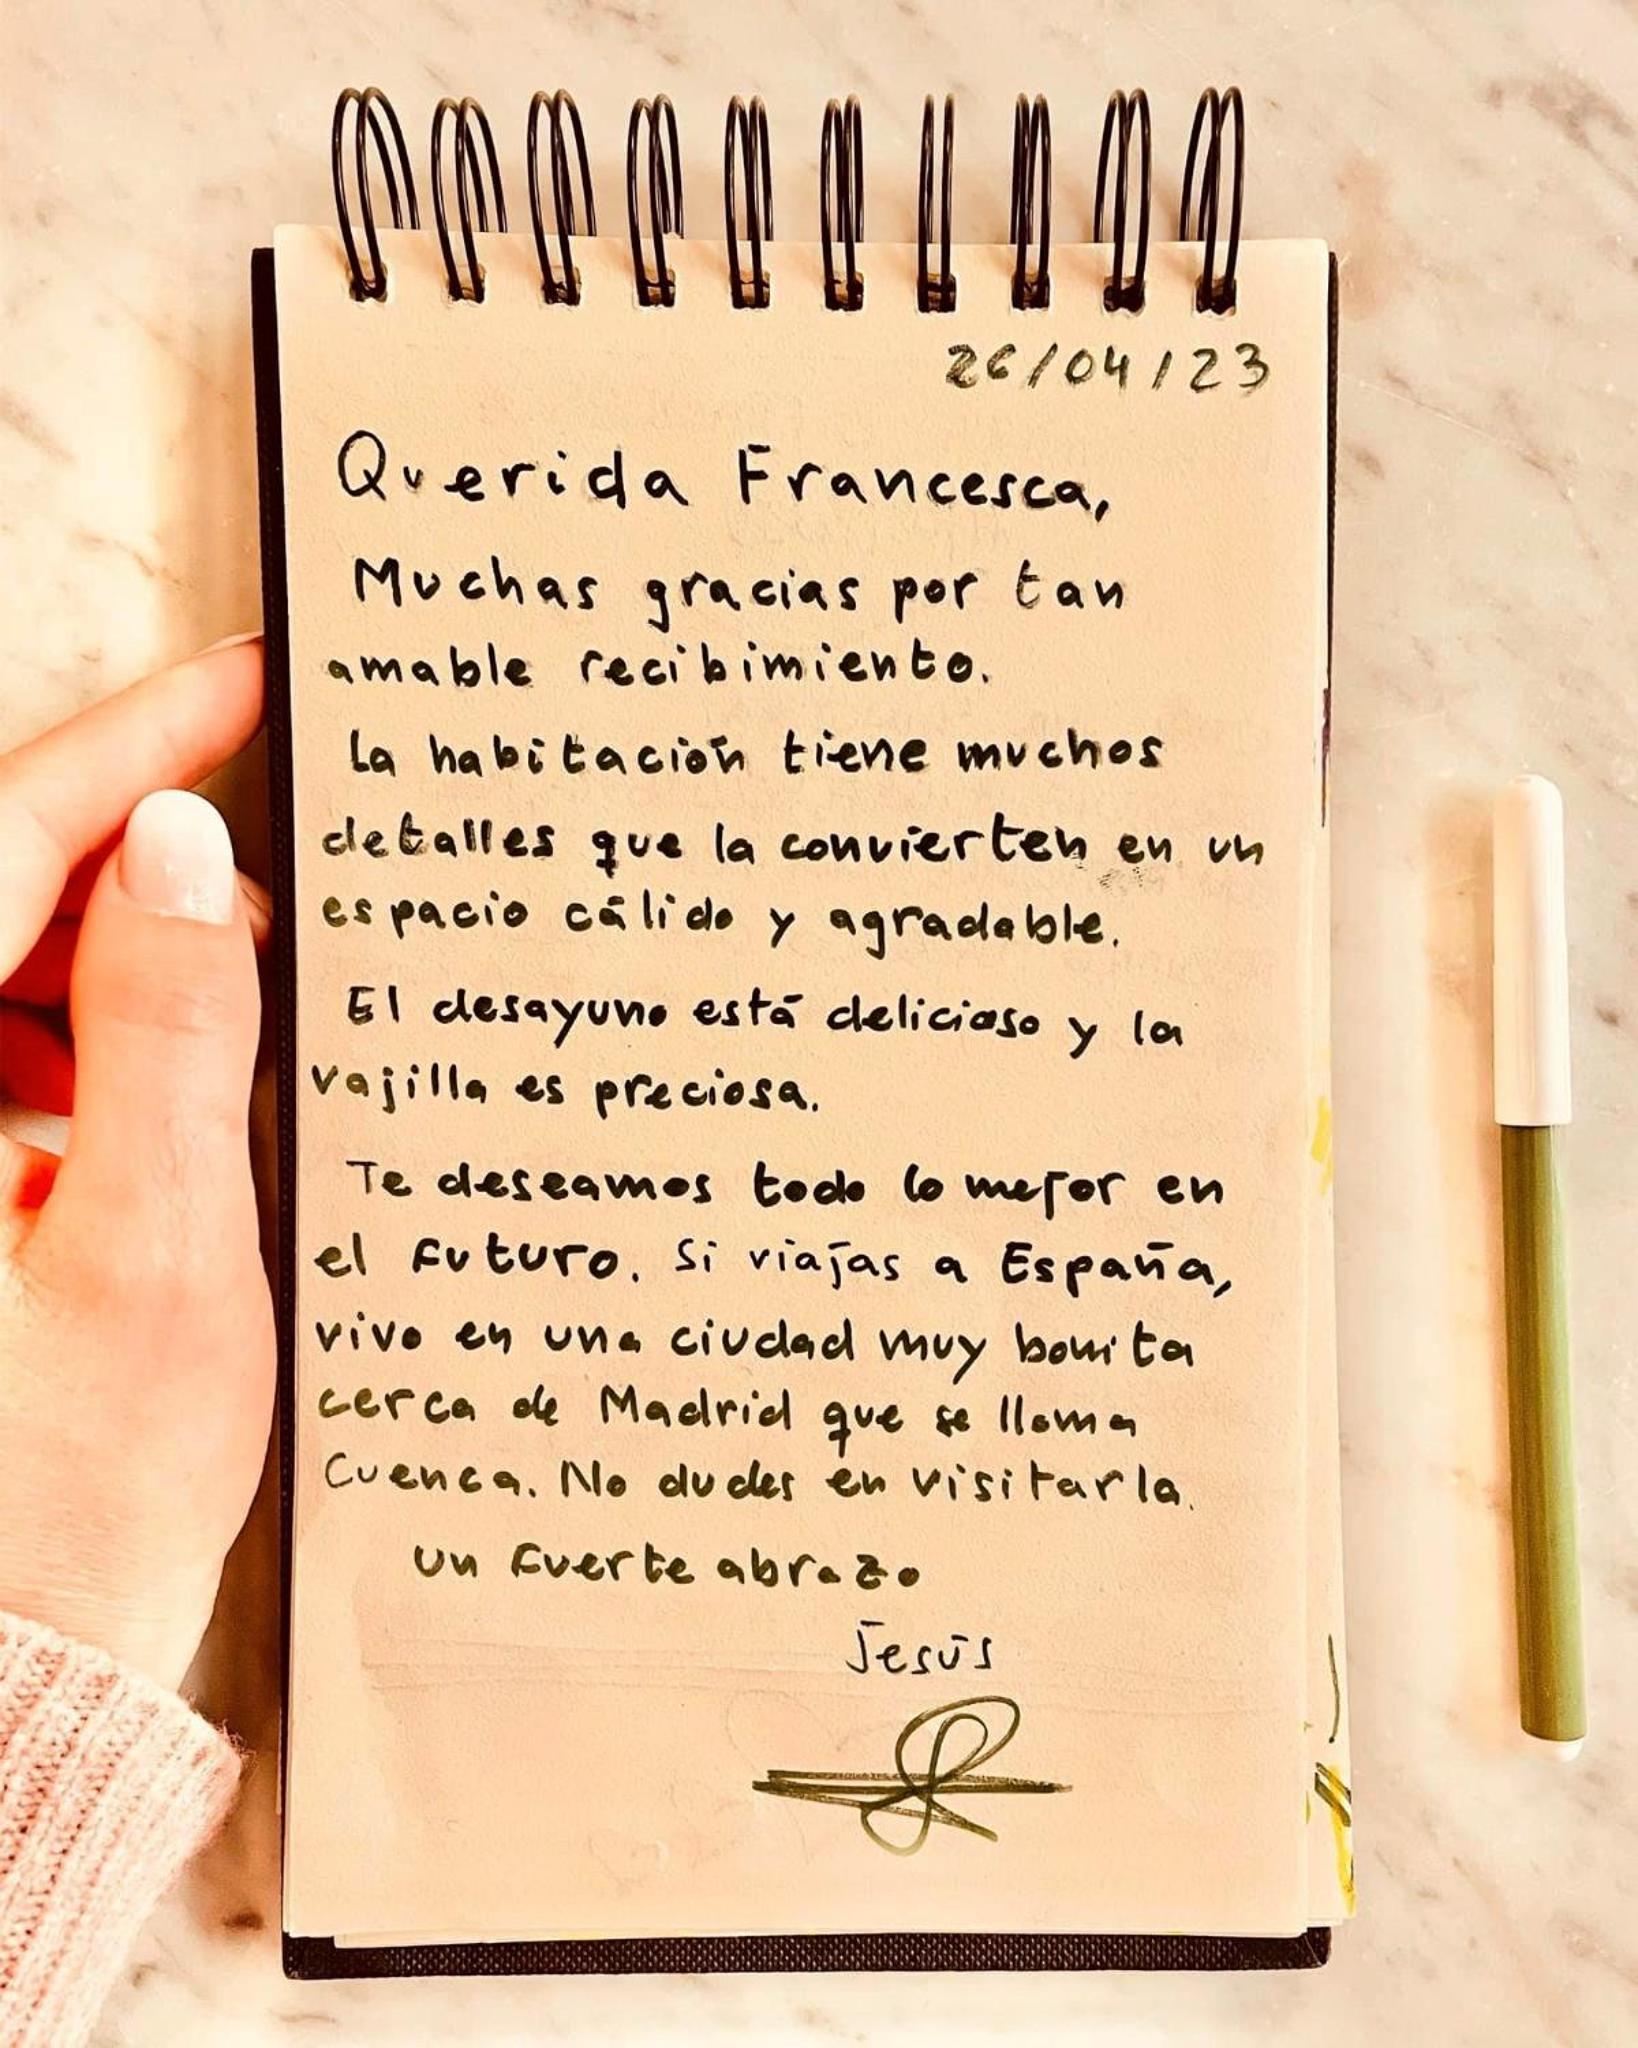 26/04/23
Querida Francesca,
Muchas gracias por tan
amable recibimiento.
La habitación tiene muchos
detalles que la convierten en un
espacio cálido y agradable.
El desayuno está delicioso y la
vajilla es preciosa.
Te deseamos todo lo mejor en
el futuro. Si viajas a España,
vivo en una ciudad muy bonita
cerca de Madrid que se llama
Cuenca. No dudes en visitarla.
un fuerte abrazo
Jesús